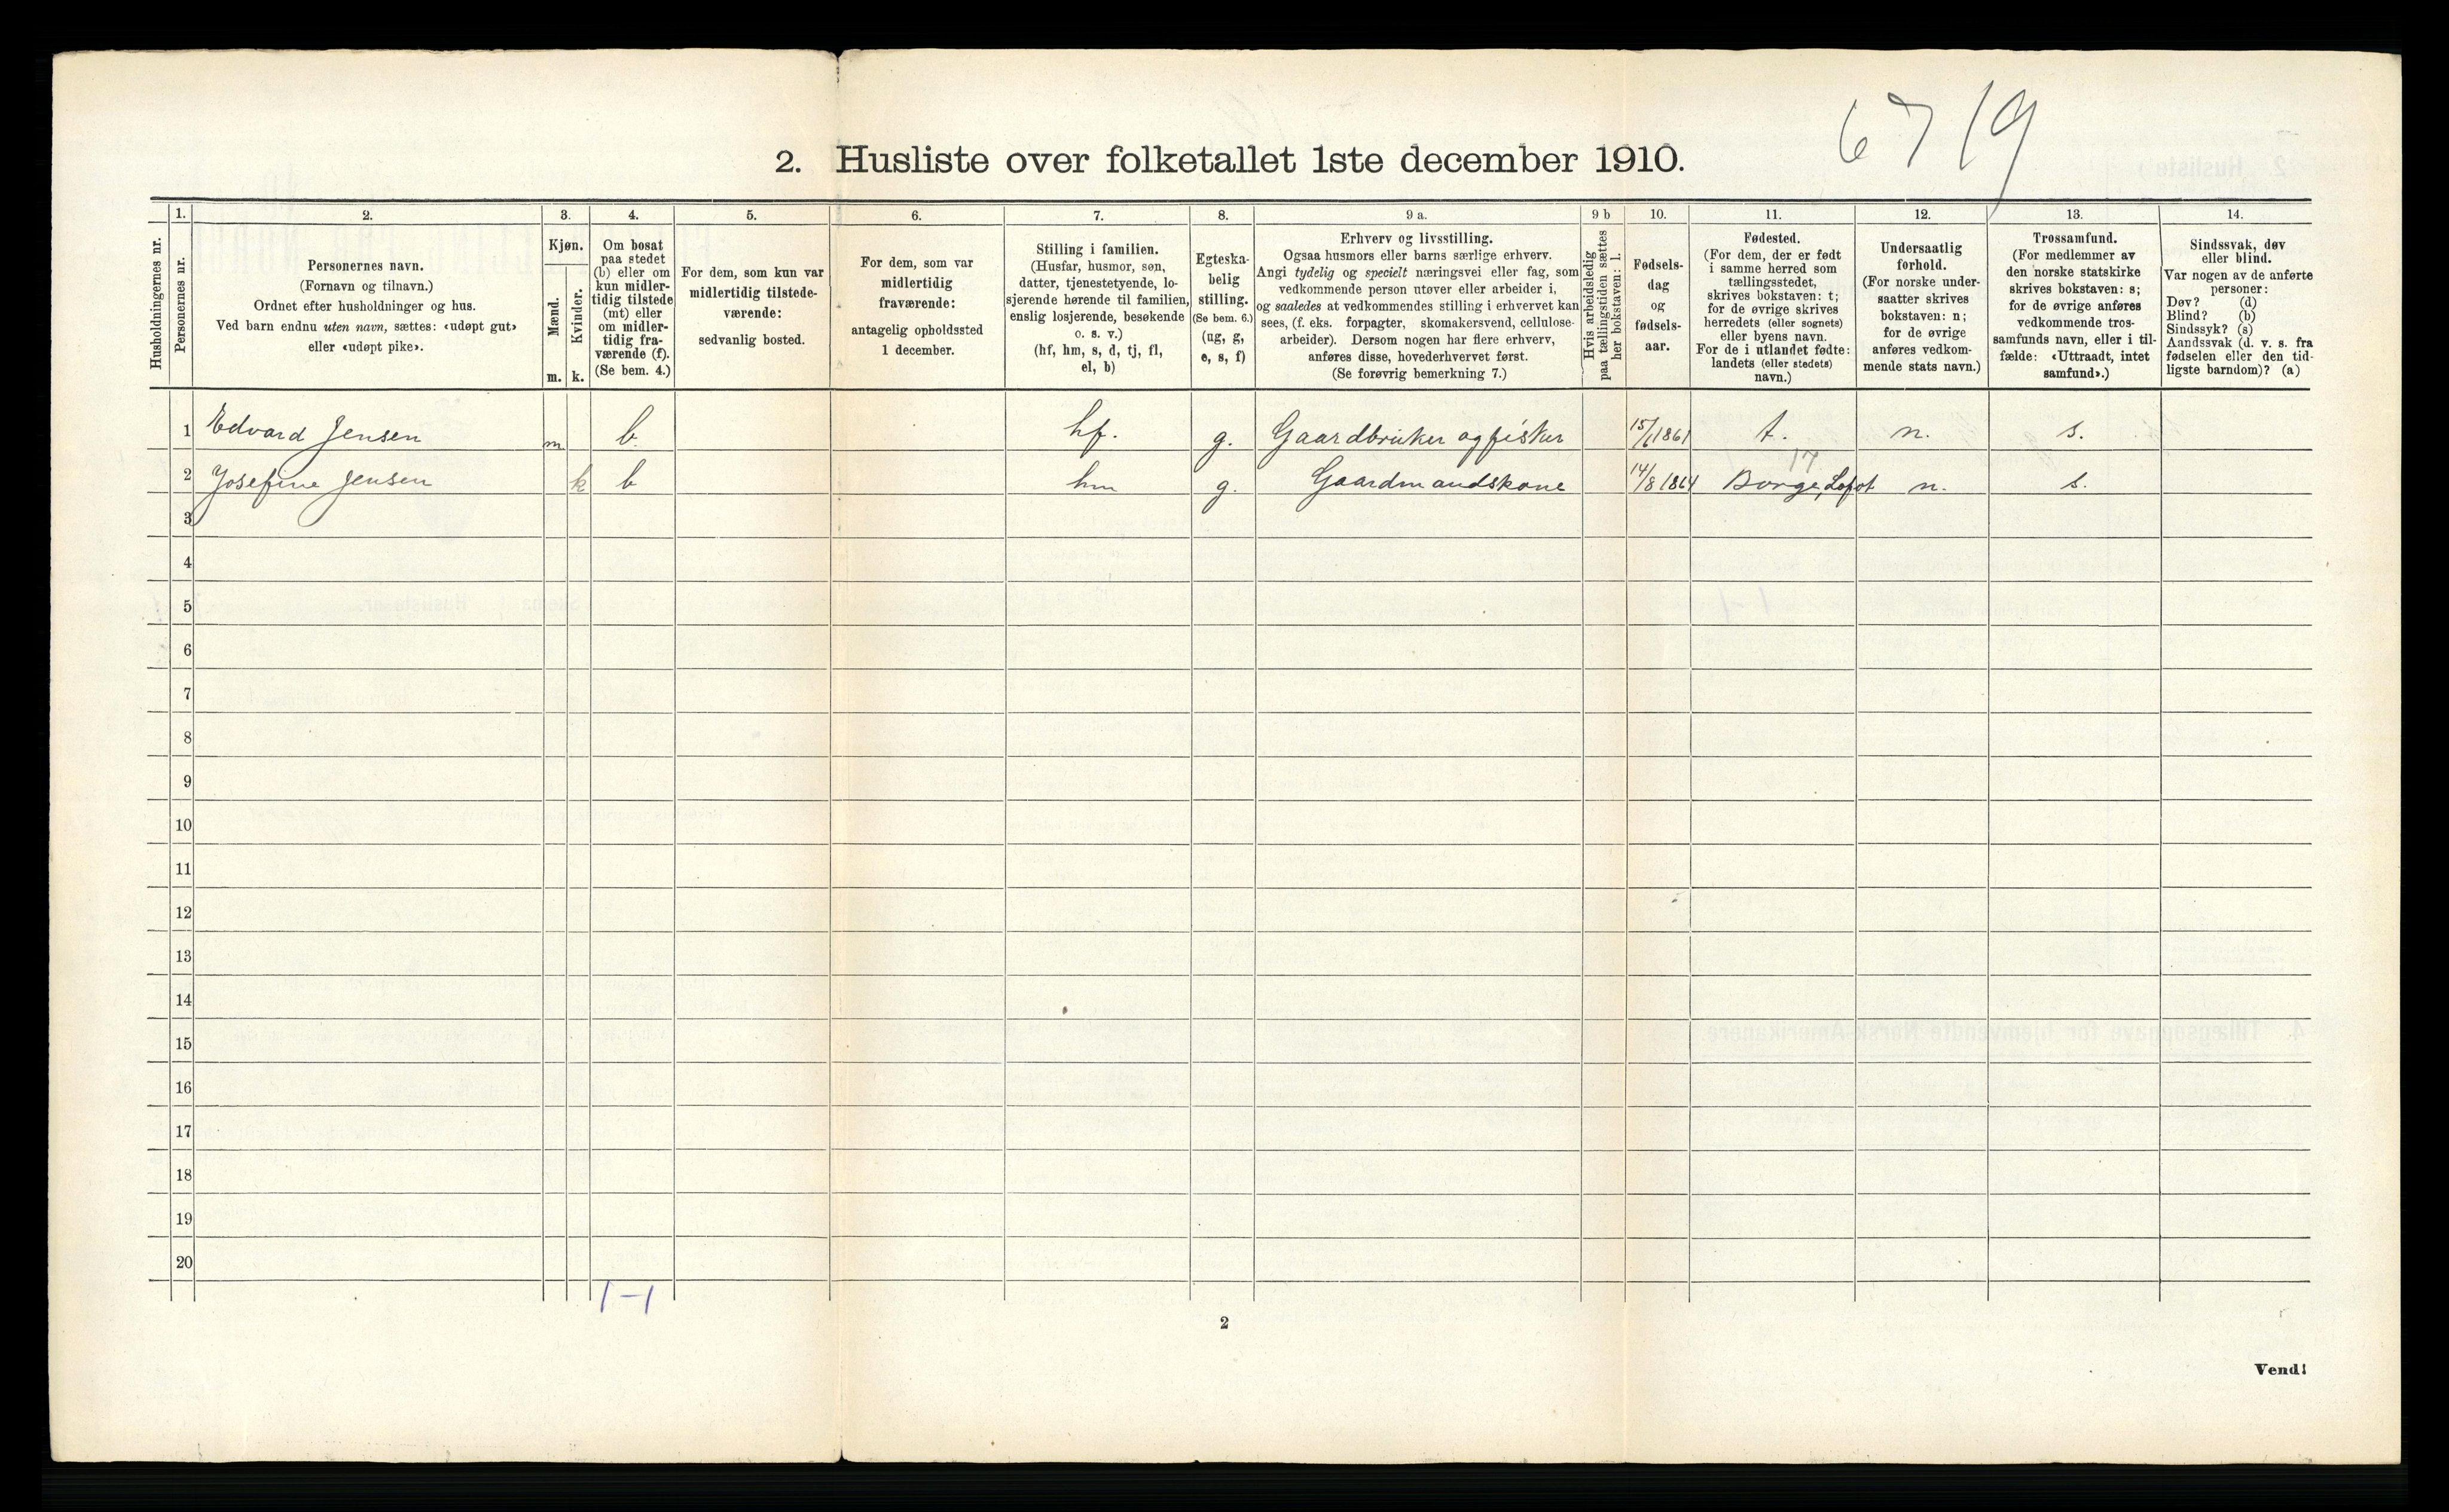 6719
2. Husliste over folketallet 1ste december 1910.
Husholdningernes nr.
1.
Personernes nr.
2.
Personernes navn.
(Fornavn og tilnavn.)
Ordnet efter husholdninger og hus.
Ved barn endnu uten navn, sættes: «udøpt gut»
eller «udøpt pike».
3.
Kjøn.
Mænd.
Kvinder.
m. k.
4.
Om bosat
paa stedet
(b) eller om
kun midler-
tidig tilstede
(mt) eller
om midler-
tidig fra-
værende (f).
(Se bem. 4.)
5.
For dem, som kun var
midlertidig tilstede-
værende:
sedvanlig bosted.
6.
For dem, som var
midlertidig
fraværende:
antagelig opholdssted
1 december.
7.
Stilling i familien.
(Husfar, husmor, søn,
datter, tjenestetyende, lo-
sjerende hørende til familien,
enslig losjerende, besøkende
o. s. v.)
(hf, hm, s, d, tj, fl,
el, b)
8.
Egteska-
belig
stilling.
(Se bem. 6.)
(ug, g,
e, s, f)
9 a.
Erhverv og livsstilling.
Ogsaa husmors eller barns særlige erhverv.
Angi tydelig og specielt næringsvei eller fag, som
vedkommende person utøver eller arbeider i,
og saaledes at vedkommendes stilling i erhvervet kan
sees, (f. eks. forpagter, skomakersvend, cellulose-
arbeider). Dersom nogen har flere erhverv,
anføres disse, hovederhvervet først.
(Se forøvrig bemerkning 7.)
9 b
Hvis arbeidsledig
paa tællingstiden sættes
her bokstaven: l.
10.
Fødsels-
dag
og
fødsels-
aar.
11.
Fødested.
(For dem, der er født
i samme herred som
tællingsstedet,
skrives bokstaven: t;
for de øvrige skrives
herredets (eller sognets)
eller byens navn.
For de i utlandet fødte:
landets (eller stedets)
navn.)
12.
Undersaatlig
forhold.
(For norske under-
saatter skrives
bokstaven: n;
for de øvrige
anføres vedkom-
mende stats navn.)
13.
Trossamfund.
(For medlemmer av
den norske statskirke
skrives bokstaven: s;
for de øvrige anføres
vedkommende tros-
samfunds navn, eller i til-
fælde: «Uttraadt, intet
samfund».)
14.
Sindssvak, døv
eller blind.
Var nogen av de anførte
personer:
Døv? (d)
Blind? (b)
Sindssyk? (s)
Aandssvak (d. v. s. fra
fødselen eller den tid-
ligste barndom)? (a)
1 Edvard Jensen m b hf. g. Gaardbruker og fisker 15/1 1861 t. n. s.
17
2 Josefine Jensen k b hm g. Gaardmandskone 14/8 1864 Borge, Lofot n. s.
3
4
5
6
7
8
9
10
11
12
13
14
15
16
17
18
19
20
1-1
2
Vend!